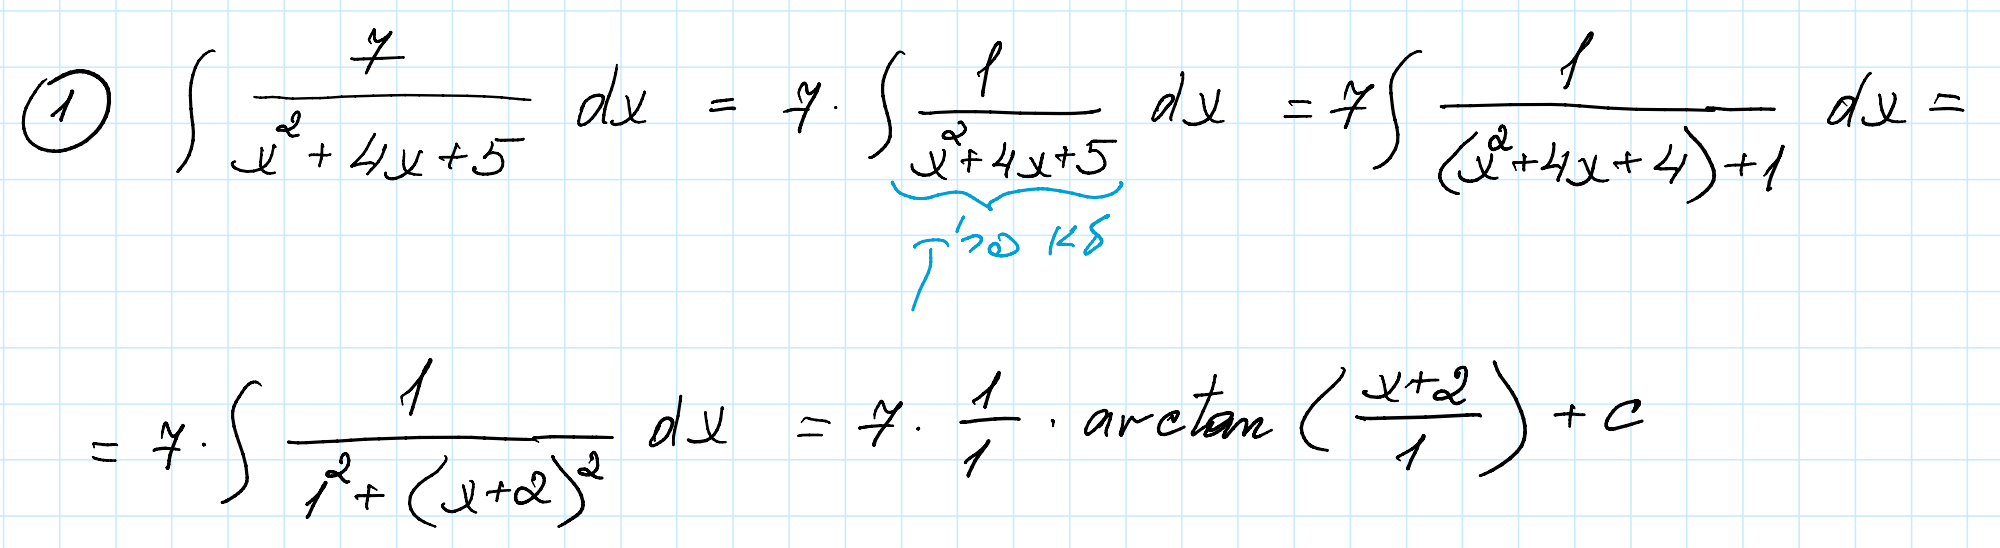 ① ∫ 7/(x²+4x+5) dx = 7· ∫ 1/(x²+4x+5) dx = 7 ∫ 1/((x²+4x+4)+1) dx =
לא פריק
= 7· ∫ 1/(1²+(x+2)²) dx = 7 · 1/1 · arctan ((x+2)/1) + c